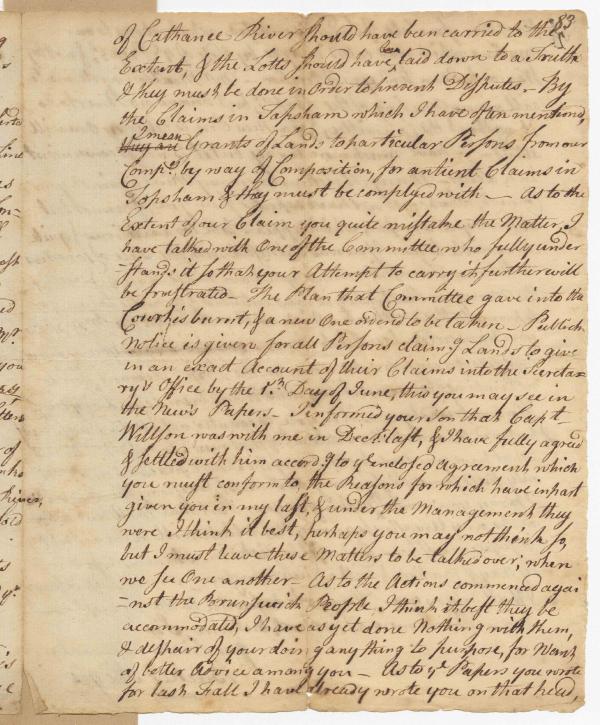 83
of Cathance River should have been carried to the
Extent, & the Lotts should have been laid down to a Truth
& they must be done in order to prevent Disputes – By
the Claims in Topsham which I have often mentioned,
they are I mean Grants of Lands to particular Persons from our
Compy. by way of Composition, for antient Claims in
Topsham & they must be complyed with – As to the
Extent of our Claim you quite mistake the Matter, I
have talked with One of the Committee who fully under
-stands it so that your Attempt to carry it further will
be frustrated – The Plan that Committee gave into the
Court is burnt, & a new One orderd to be taken – Publick
Notice is given for all Persons claimg. Lands to give
in an exact Account of their Claims into the Secreta-
ry's Office by the 1st. Day of June, this you may see in
the News Papers – I informed your Son that Capt.
Willson was with me in Decr. last, & I have fully agreed
& settled with him accordg. to ye. enclosed agreement which
you must conform to, the Reasons for which have in part
given you in my last, & under the Management they
were I think it best, perhaps you may not think so,
but I must leave these Matters to be talked over, when
we see One another – As to the Actions commenced agai
-nst the Brunswick People I think it best they be
accommodated, I have as yet done Nothing with them,
& despair of your doing any thing to purpose, for Want
of better Advice among you – As to ye. Papers you wrote
for last Fall I have already wrote you on that head,